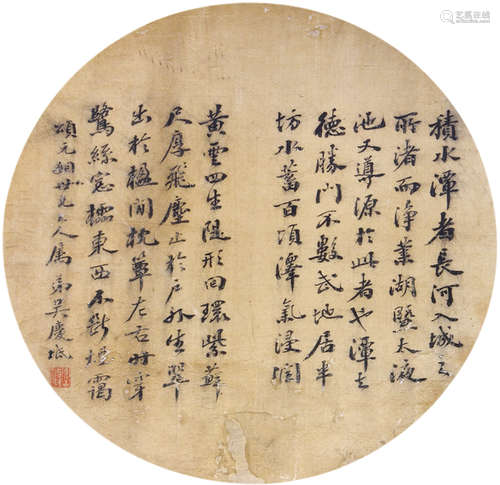 積水潭者長河入城之
所渚而淨業湖暨太液
池又導源於此者也潭去
德勝門不數武地居半
坊水蓄百頃澤氣浸
黃雲四生隄形回環紫蘚
尺厚飛塵止於戶外生翠
出於楹間枕簟左右時
鷺絲窗東西不斷
頌元姻世兄大人屬 弟吳慶坻